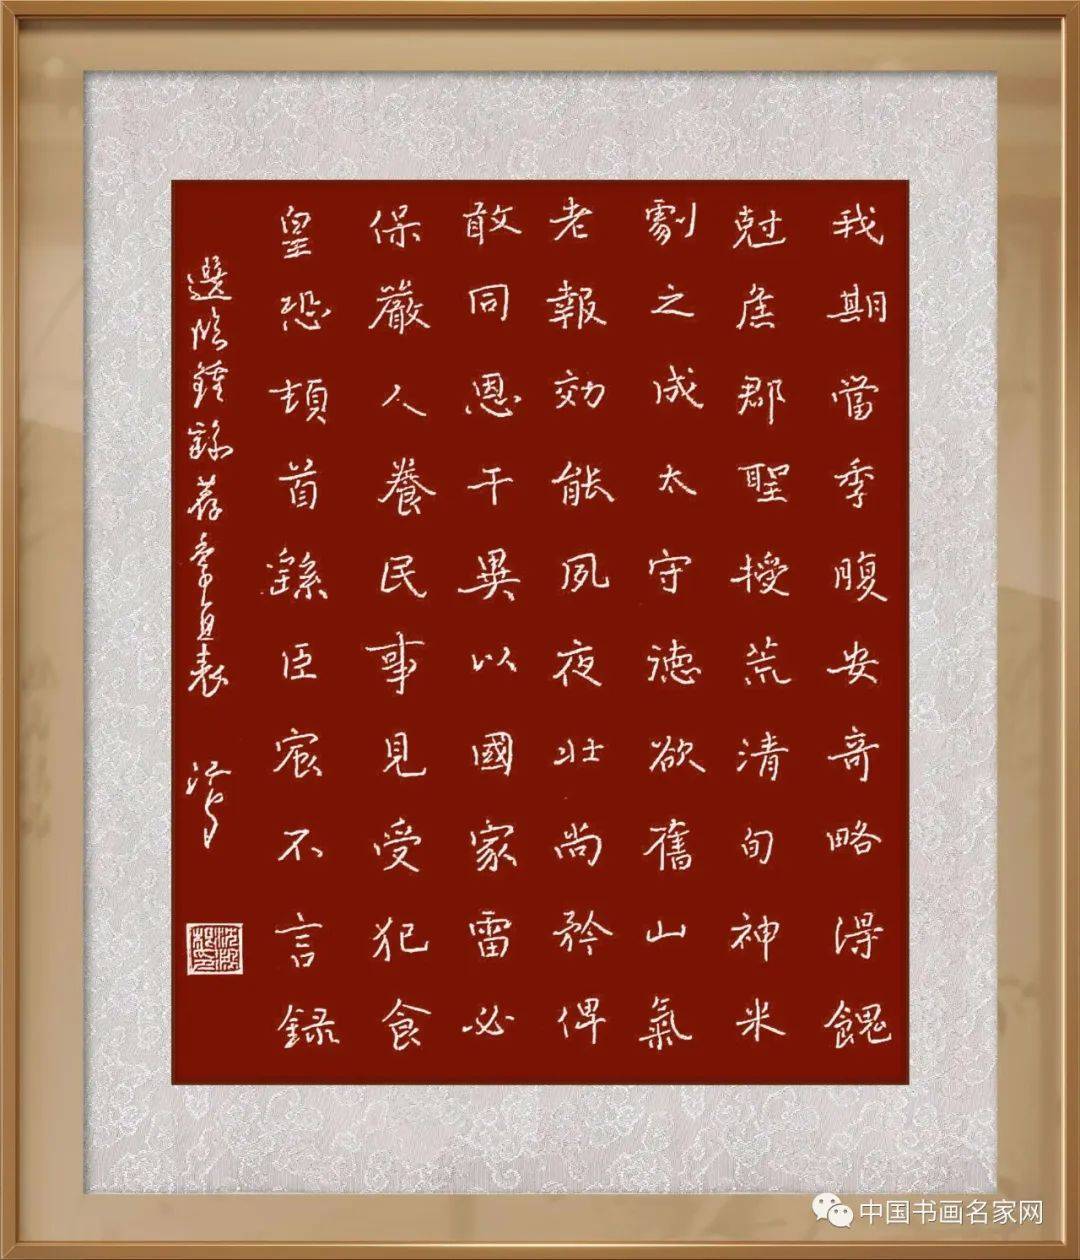 我期當季腹安奇略得餽
尅焦郡聖授荒清旬神米
劇之成太守德欲舊山氣
老報効能夙夜壯尚矜俾
敢同恩干異以國家雷必
保嚴人養民事見受犯食
皇恐頓首繇臣宸不言録
選臨鍾繇荐季直表
中国书画名家网